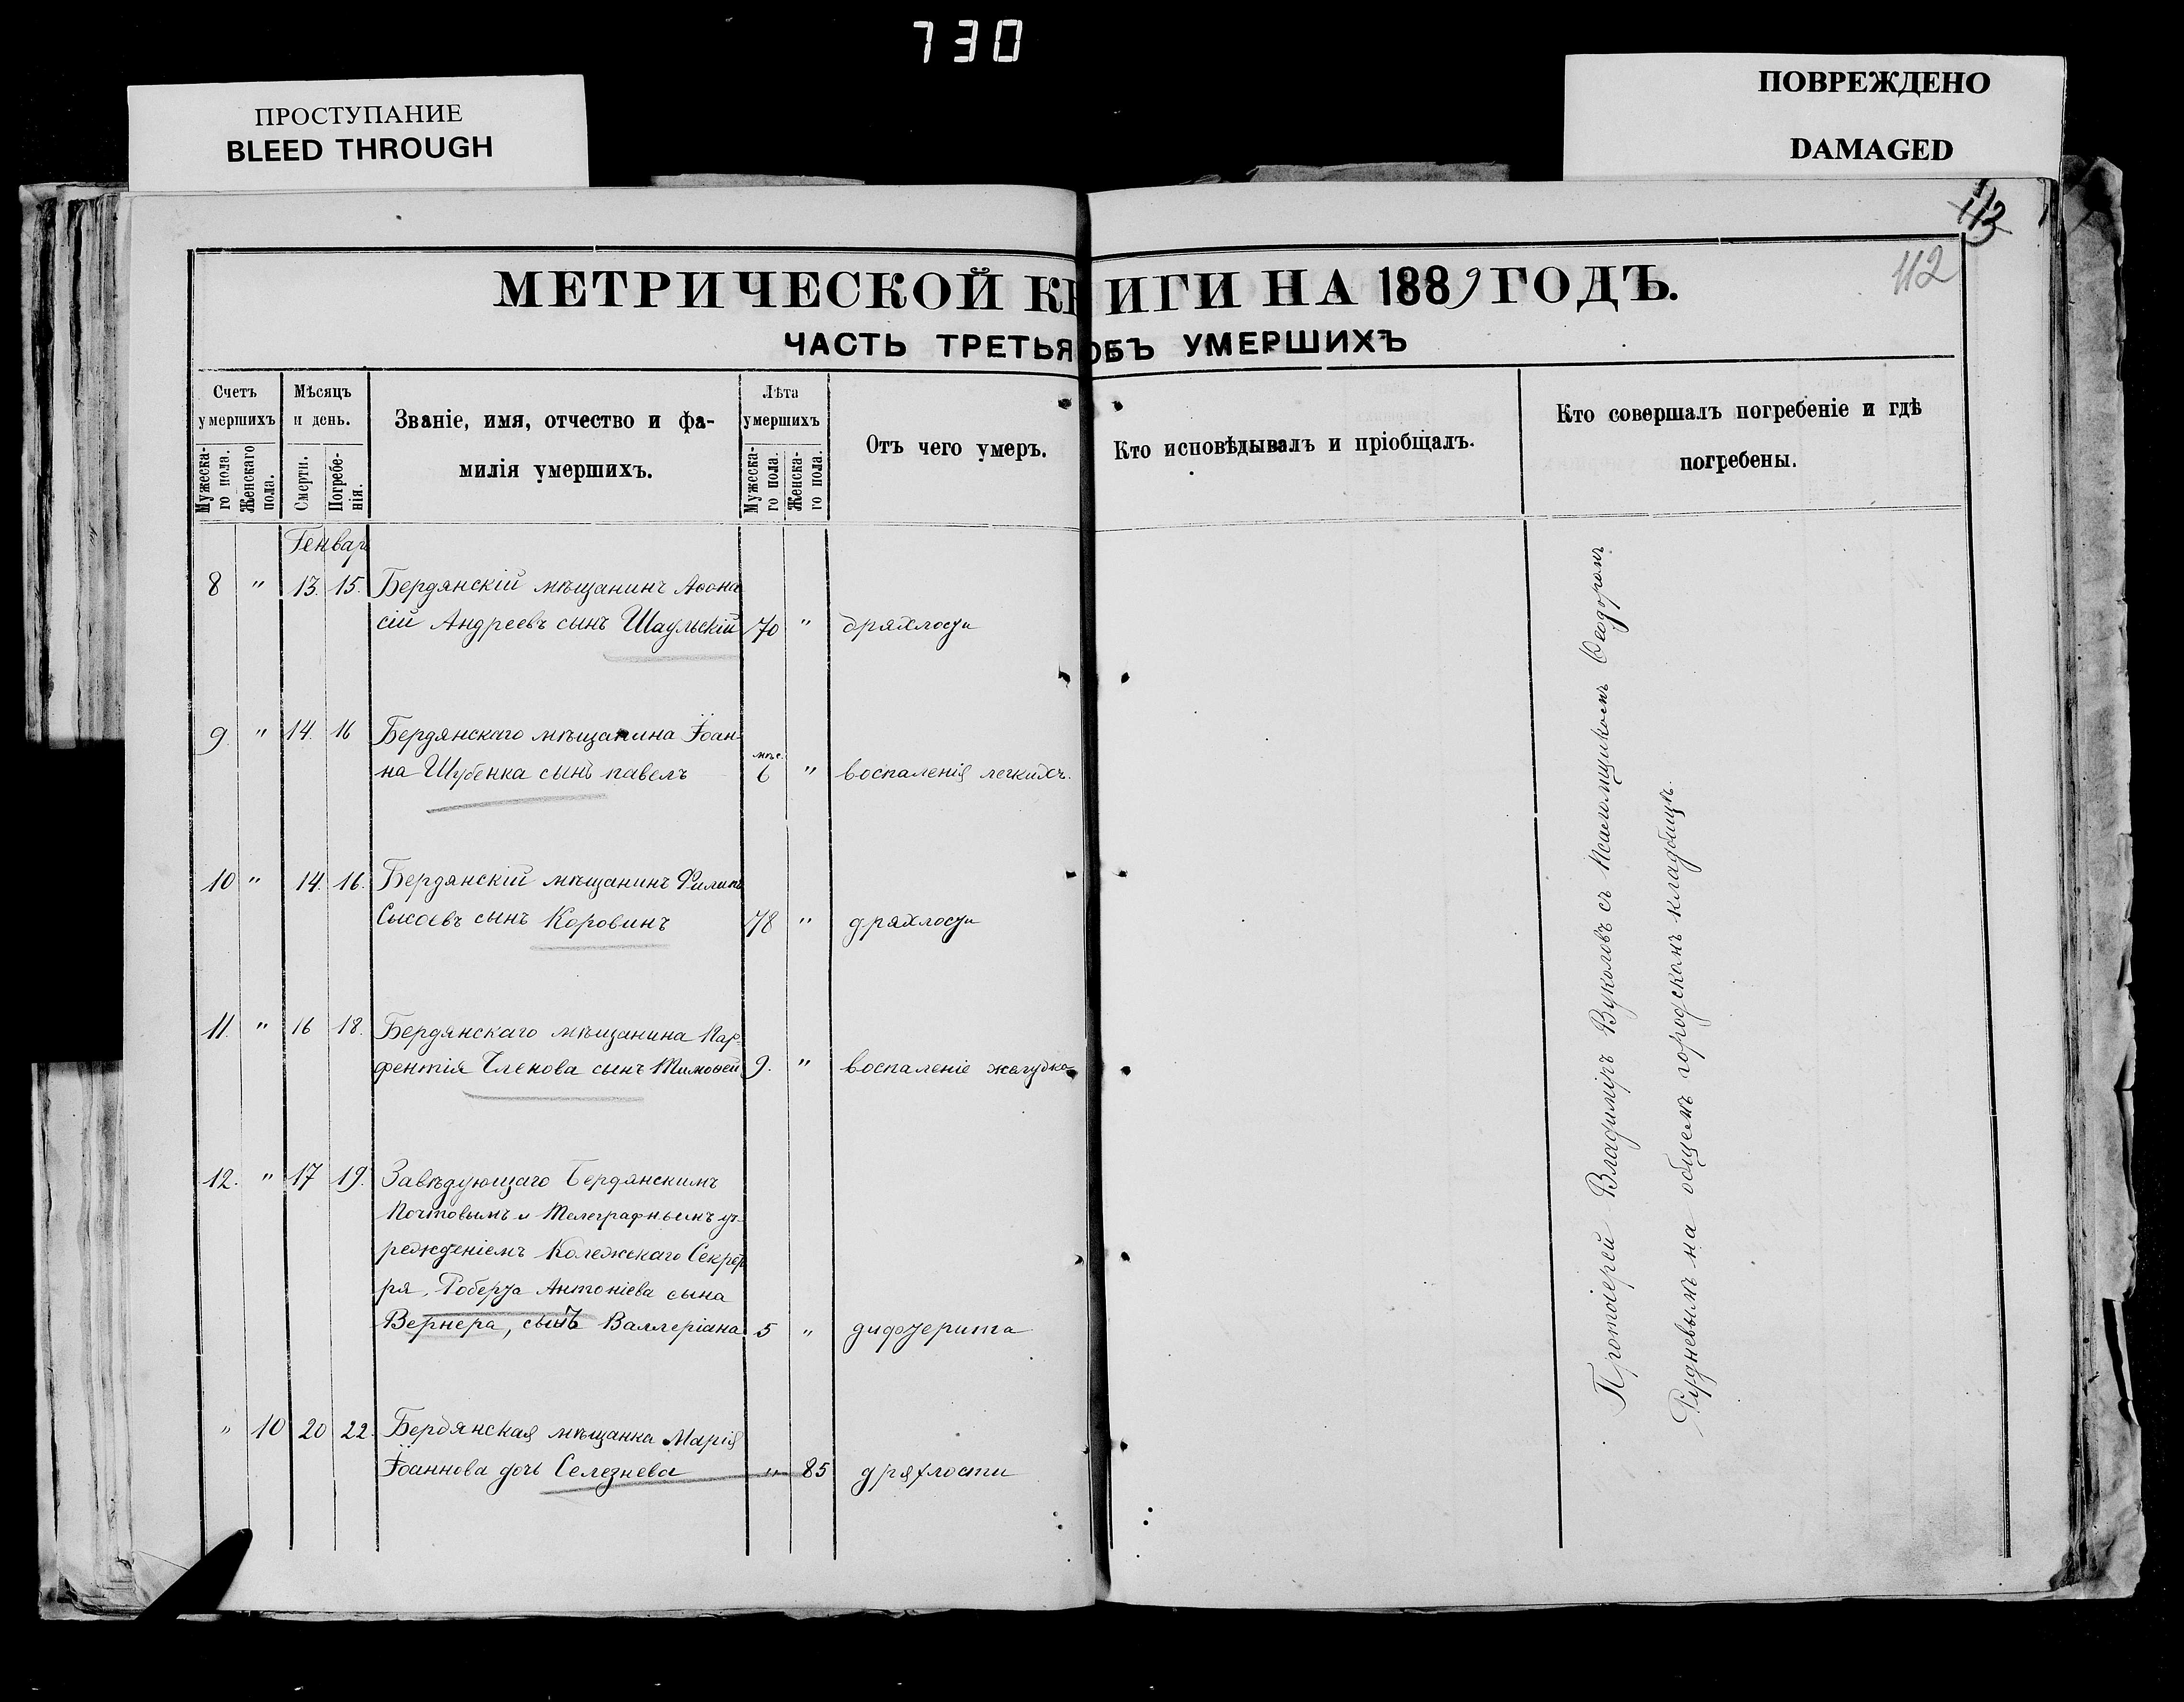 730
ПРОСТУПАНИЕ
BLEED THROUGH
ПОВРЕЖДЕНО
DAMAGED
113
112
МЕТРИЧЕСКОЙ КНИГИ НА 1889 ГОДЪ.
ЧАСТЬ ТРЕТЬЯ ОБЪ УМЕРШИХЪ
Счетъ умершихъ
Мужеска-го пола.
Женскаго пола.
Мѣсяцъ и день.
Смерти.
Погребе-нія.
Званіе, имя, отчество и фа-
милія умершихъ.
Лѣта умершихъ
Мужеска-го пола.
Женска-го пола.
Отъ чего умеръ.
Кто исповѣдывалъ и пріобщалъ.
Кто совершалъ погребеніе и гдѣ
погребены.
Генварь
8 " 13. 15. Бердянскій мѣщанинъ Аѳона
сій Андреевъ сынъ Шаульскій 70 " дряхлости
9. " 14. 16 Бердянскаго мѣщанина Іоан-
на Шубенка сынъ павелъ мѣс. 6 " воспаленія легкихъ.
10 " 14. 16. Бердянскій мѣщанинъ Филипъ
Сысоевъ сынъ Коровинъ 78 " дряхлости
11. " 16 18. Бердянскаго мѣщанина Пар-
фентія Членова сынъ Тимоѳей 9. " воспаленіе желудка
12. " 17 19. Завѣдующаго Бердянскимъ
Почтовымъ и Телеграфнымъ уч-
режденіемъ Колежскаго Секрета
ря, Роберта Антоніева сына
Вернера, сынъ Валлеріанъ 5 " дифтерита
" 10 20 22. Бердянская мѣщанка Марія
Іоаннова дочь Селезнева " 85 дряхлости
Протоіерей Владиміръ Вуколовъ съ Псаломщикомъ Ѳеодоромъ
Рудневымъ на общемъ городскомъ кладбищѣ.